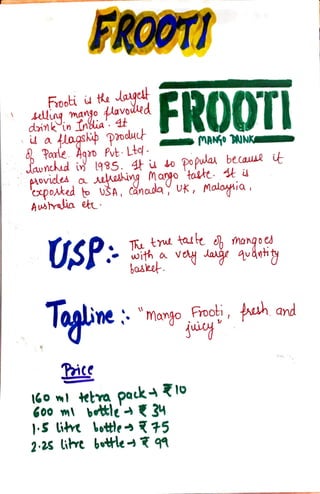 FROOTI
Frooti is the largest
selling mango flavoured
drink in India. It
is a flagship product
of Parle Agro Pvt. Ltd.
launched in 1985. It is so popular because it
provides a refreshing Mango taste. It is
exported to USA, Canada, UK, Malaysia,
Australia etc.
FROOTI
MANGO DRINK
USP:- The true taste of mangoes
with a very large quantity
basket.
Tagline:- "Mango Frooti, fresh and
juicy"
Price
160 ml tetra pack → ₹10
600 ml bottle → ₹ 34
1.5 litre bottle → ₹ 75
2.25 litre bottle → ₹ 99